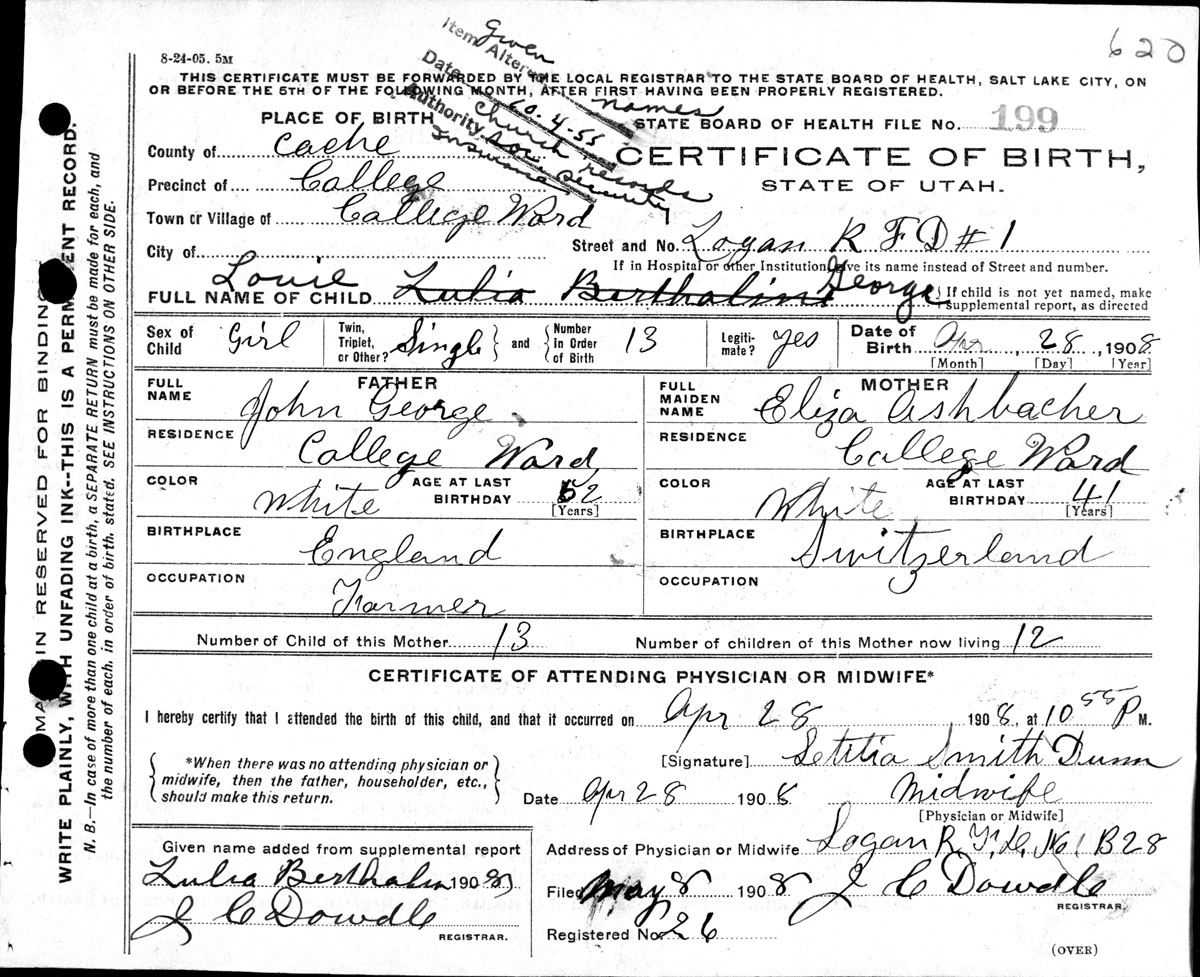 620
8-24-05. 5M
Given
Item Altered names
Date 10-4-55
Authority Church records
Soc. Security
Insurance
THIS CERTIFICATE MUST BE FORWARDED BY THE LOCAL REGISTRAR TO THE STATE BOARD OF HEALTH, SALT LAKE CITY, ON
OR BEFORE THE 5TH OF THE FOLLOWING MONTH, AFTER FIRST HAVING BEEN PROPERLY REGISTERED.
PLACE OF BIRTH
STATE BOARD OF HEALTH FILE No. 199
County of Cache
CERTIFICATE OF BIRTH,
STATE OF UTAH.
Precinct of College
Town or Village of College Ward
City of
Street and No. Logan R F D # 1
If in Hospital or other Institution give its name instead of Street and number.
Louie George
FULL NAME OF CHILD Lulia Berthalina
If child is not yet named, make
supplemental report, as directed
Sex of Child Girl Twin, Triplet, or Other? Single and Number in Order of Birth 13 Legiti-mate? yes Date of Birth Apr, 28, 1908
[Month] [Day] [Year]
FATHER
FULL NAME John George
RESIDENCE College Ward
COLOR White AGE AT LAST BIRTHDAY 52
[Years]
BIRTHPLACE England
OCCUPATION Farmer
MOTHER
FULL MAIDEN NAME Eliza Ashbacher
RESIDENCE College Ward
COLOR White AGE AT LAST BIRTHDAY 41
[Years]
BIRTHPLACE Switzerland
OCCUPATION
Number of Child of this Mother 13 Number of children of this Mother now living 12
CERTIFICATE OF ATTENDING PHYSICIAN OR MIDWIFE*
I hereby certify that I attended the birth of this child, and that it occurred on Apr 28, 1908, at 10 55 P M.
*When there was no attending physician or
midwife, then the father, householder, etc.,
should make this return.
[Signature] Letitia Smith Dunn
Date Apr 28 1908 Midwife
[Physician or Midwife]
Given name added from supplemental report
Lulia Berthalin 1908
J C Dowdle
REGISTRAR.
Address of Physician or Midwife Logan R. F. D. No 1 B 28
Filed May 8 1908 J C Dowdle
REGISTRAR
Registered No. 26
(OVER)
MARGIN RESERVED FOR BINDING
WRITE PLAINLY, WITH UNFADING INK--THIS IS A PERMANENT RECORD.
N. B.—In case of more than one child at a birth, a SEPARATE RETURN must be made for each, and
the number of each, in order of birth, stated. SEE INSTRUCTIONS ON OTHER SIDE.